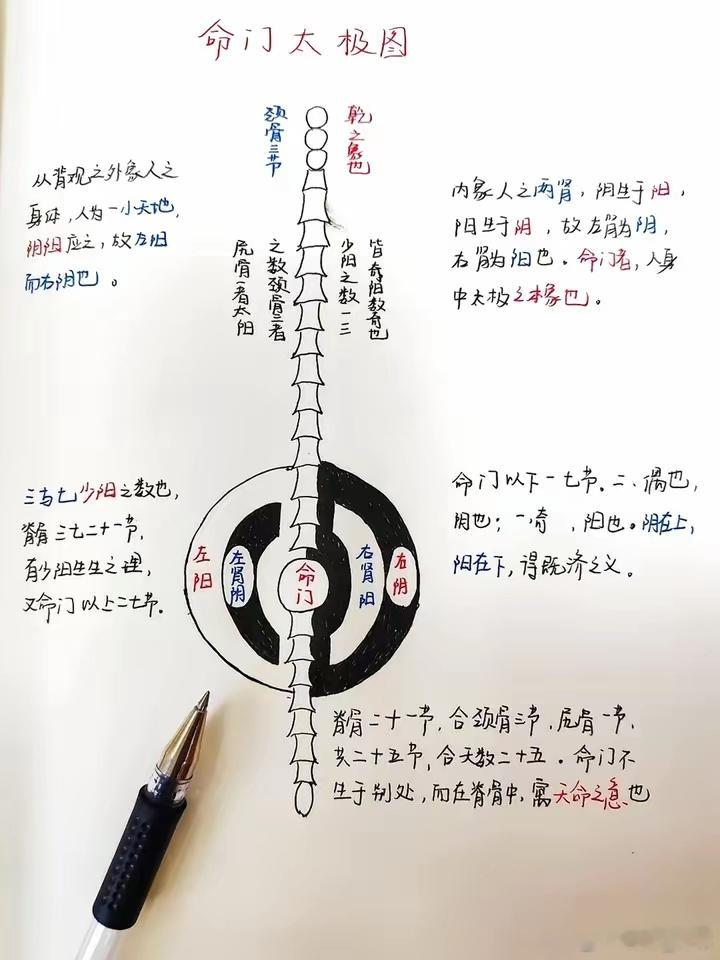 命门太极图
颈骨三节
乾之象也
从背观之外象人之
身体，人为一小天地，
阴阳应之，故左阳
而右阴也。
内象人之两肾，阴生于阳，
阳生于阴，故左肾为阴，
右肾为阳也。命门者，人身
中太极之本象也。
皆奇阳数奇也
少阳之数一三
之数颈骨三者
尻骨一者太阳
三与七少阳之数也，
脊骨三七二十一节，
有少阳生生之理，
又命门以上二七节．
命门以下一七节．二、偶也，
阴也；一奇，阳也。阴在上，
阳在下，得既济之义。
左阳
左肾阴
命门
右肾阳
右阴
脊骨二十一节，合颈骨三节，尻骨一节，
共二十五节，合天数二十五。命门不
生于别处，而在脊骨中，寓天命之意也